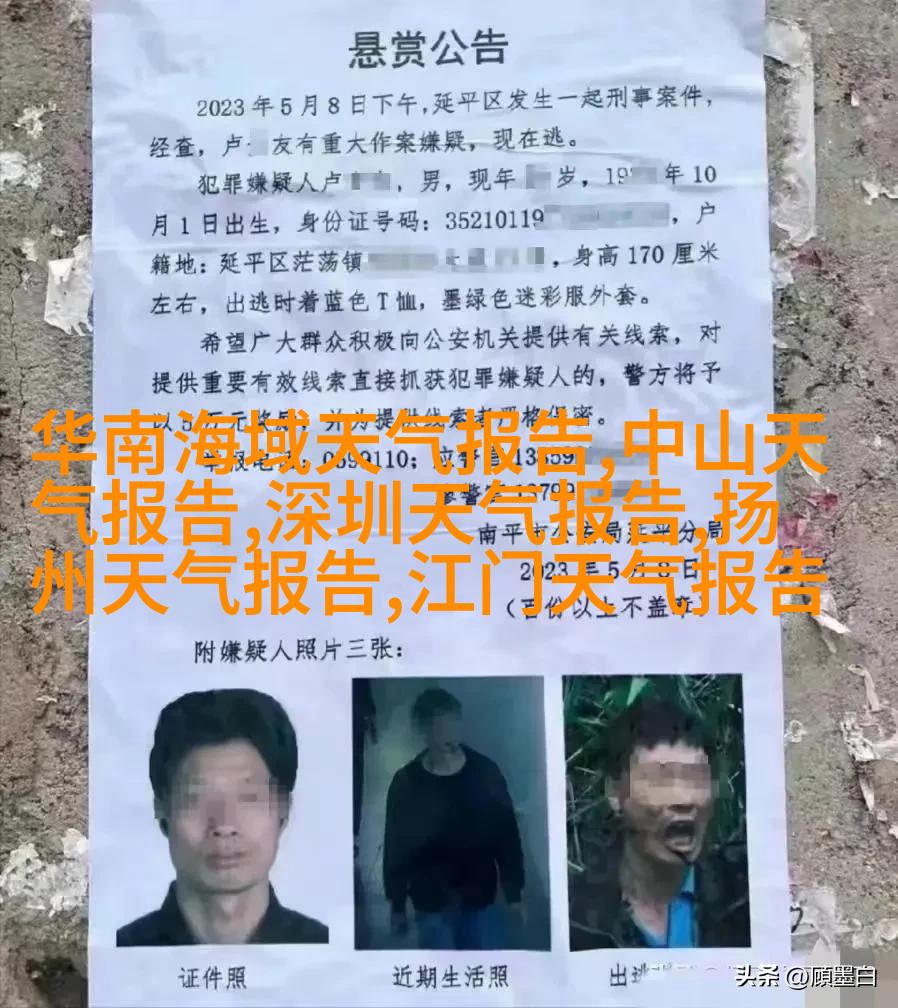 悬赏公告
2023年5月8日下午,延平区发生一起刑事案件,
经查,卢 友有重大作案嫌疑,现在逃。
犯罪嫌疑人卢 ,男,现年 岁,19 年10
月1日出生,身份证号码:35210119 ,户
籍地:延平区茫荡镇 ,身高170厘米
左右,出逃时着蓝色T恤,墨绿色迷彩服外套。
希望广大群众积极向公安机关提供有关线索,对
提供重要有效线索直接抓获犯罪嫌疑人的,警方将予
华南海域天气报告,中山天
气报告,深圳天气报告,扬
州天气报告,江门天气报告
南平市公安局延平分局
2023年5月8日
(百份以上不盖章)
附嫌疑人照片三张:
证件照
近期生活照
出逃
头条 @顾墨白